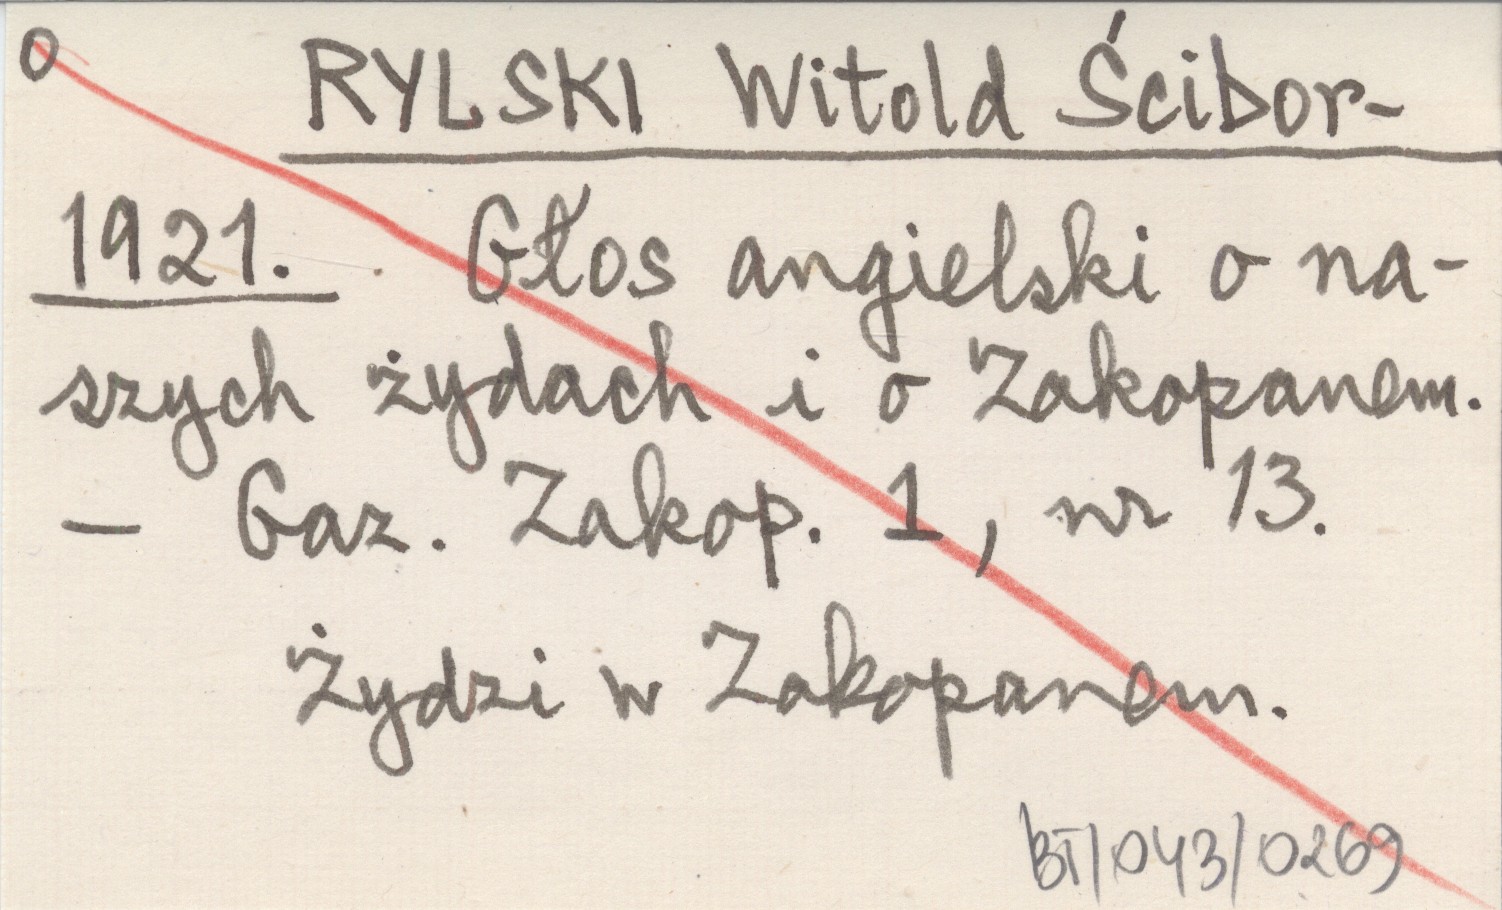 O RYLSKI Witold Ścibor-
1921. Głos angielski o na-
szych żydach i o Zakopanem.
— Gaz. Zakop. 1, nr 13.
Żydzi w Zakopanem.
BT/043/0269